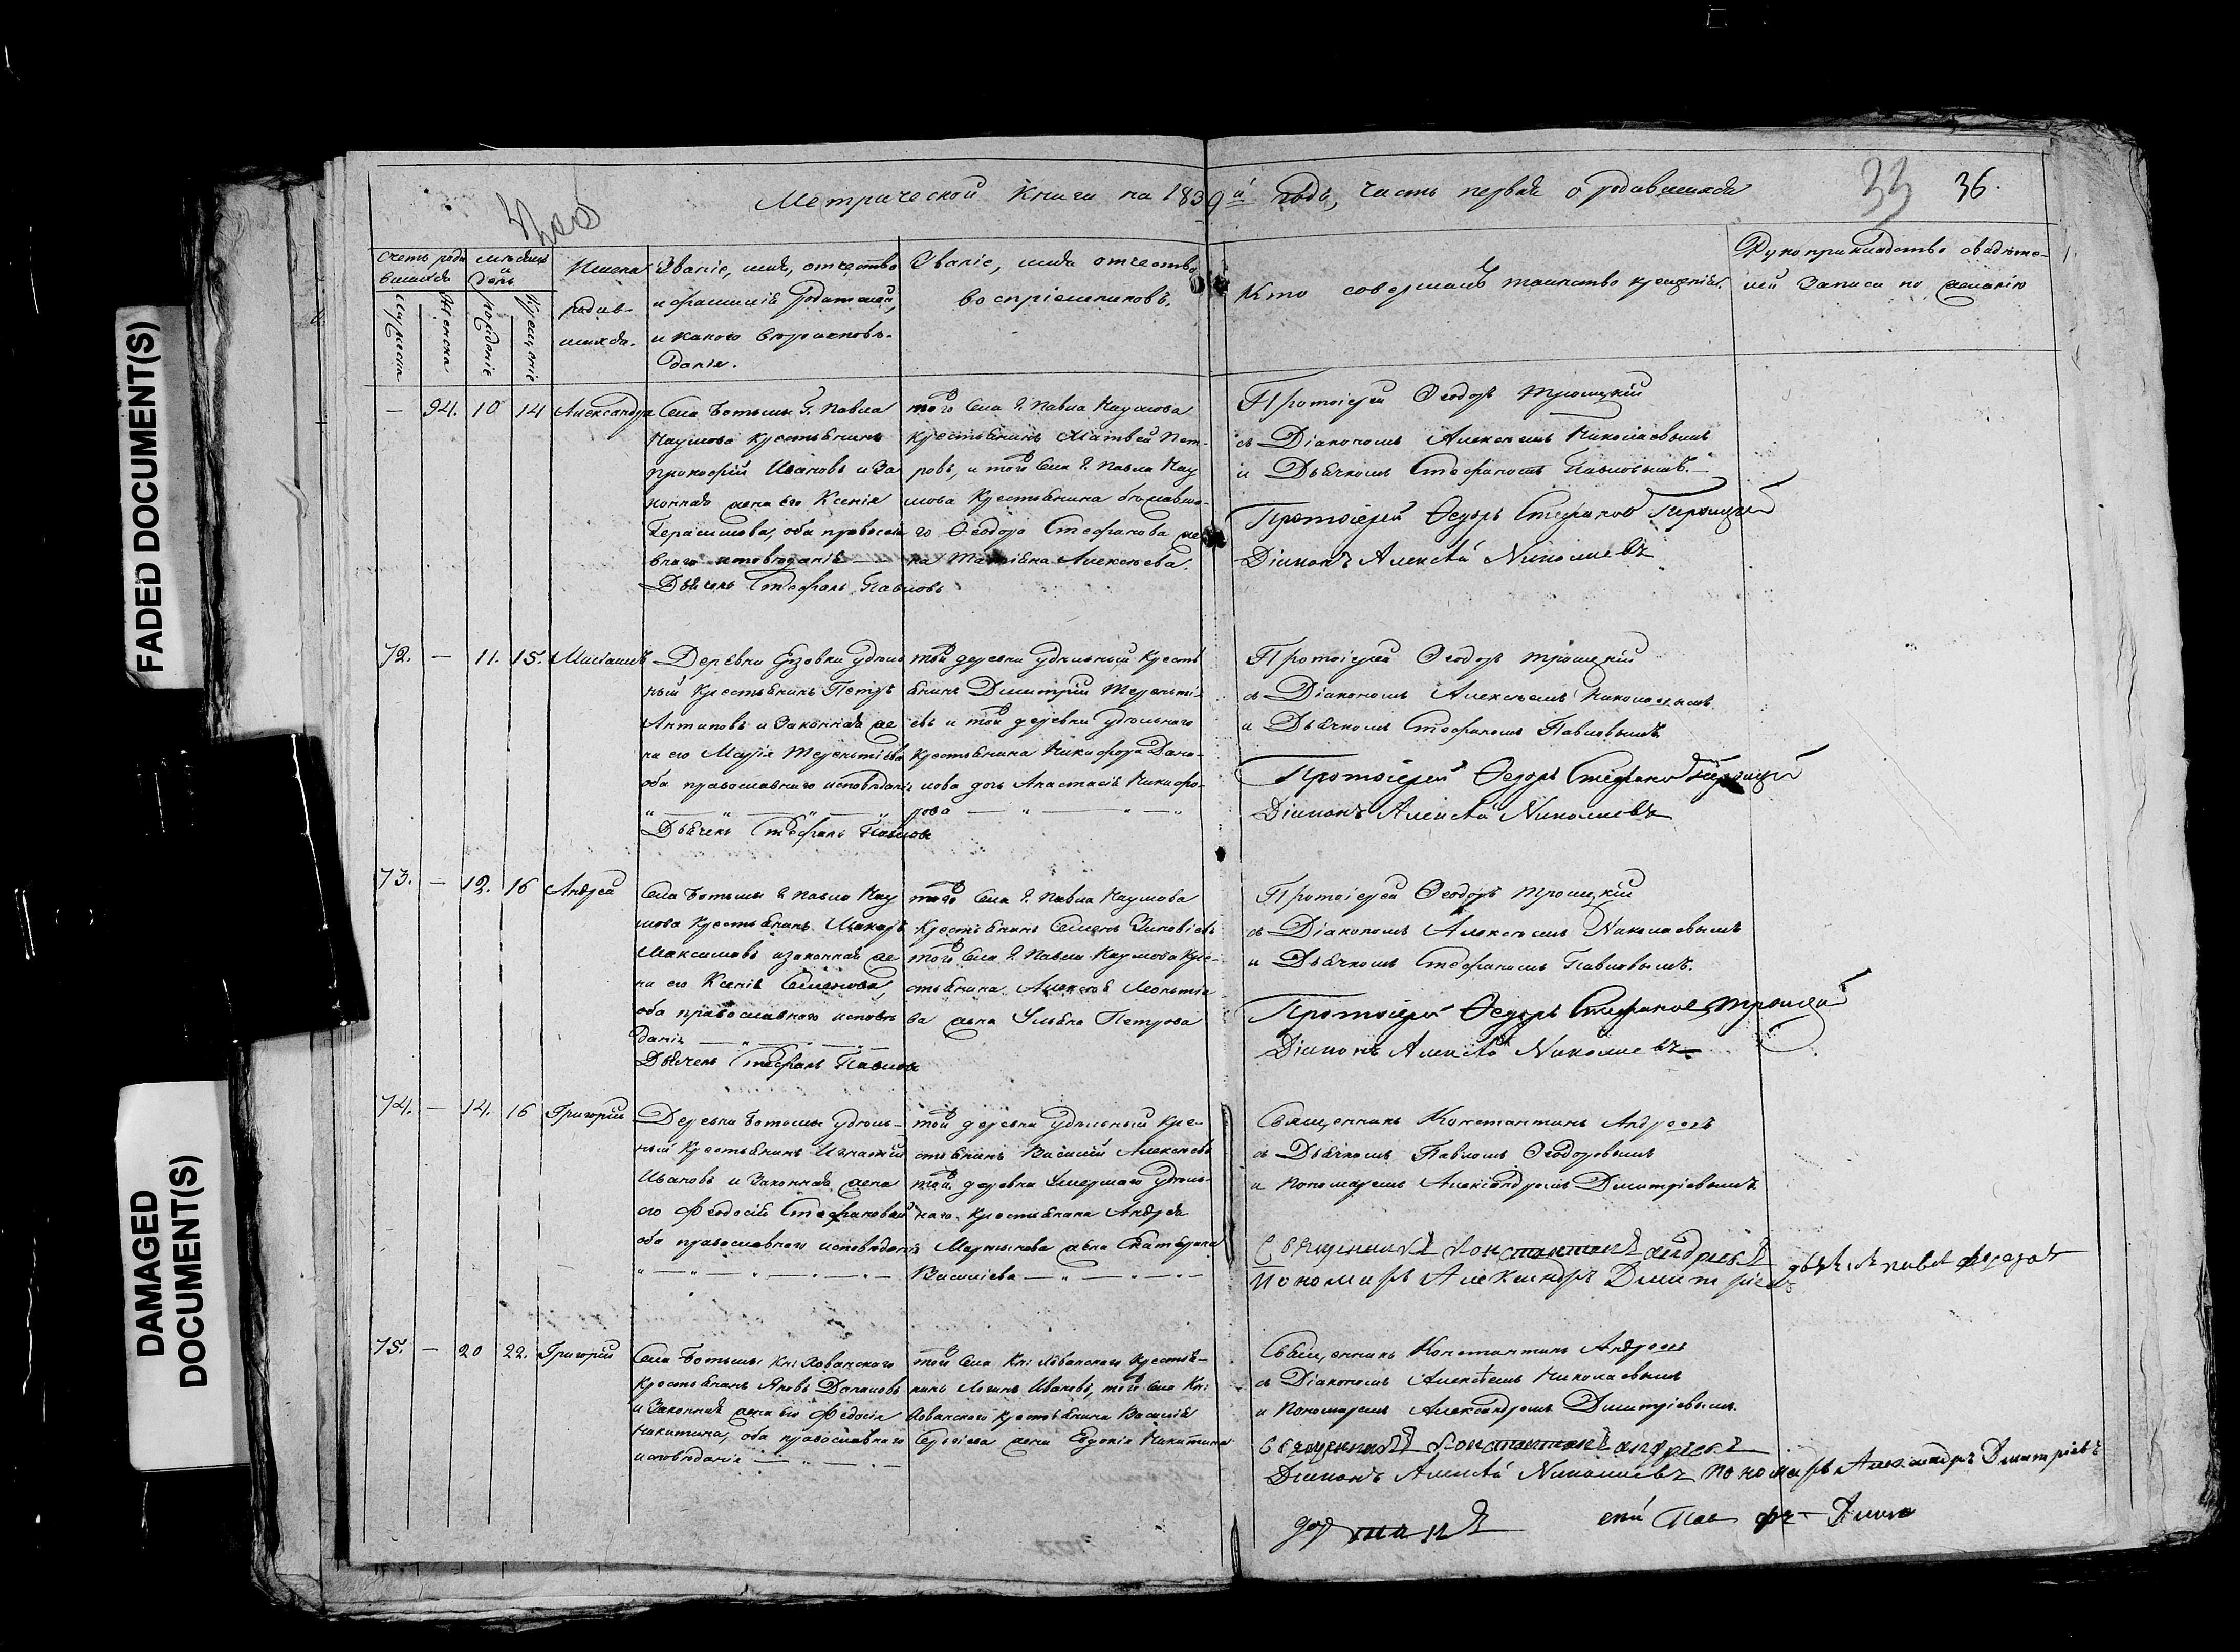 FADED DOCUMENT(S)
DAMAGED
DOCUMENT(S)
Метрической книги на 1839й годъ, часть первая о родившихся
33 36.
Счетъ роди
вшихся
Мужеска
Женска
мѣсяцъ
и
день
рожденіе
крещеніе
Имена
родив-
шихся.
Званіе, имя, отчество
и фамилія родителей,
и какого вѣроисповѣ-
данія.
Званіе, имя отчество
воспріемниковъ.
Кто совершалъ таинство крещенія.
Рукоприкладство свидѣте-
лей записи по желанію
— 94. 10 14 Александра
Села Ботьмы Г. Павла
Наумова крестьянинъ
Прокофій Ивановъ и За
конная жена его Ксенія
Герасимова, оба правосла
внаго исповѣданія —
Дьячекъ Стефанъ Павловъ
того Села Г. Павла Наумова
крестьянинъ Матвей Пет-
ровъ, и того Села Г. Павла Нау
мова крестьянина бѣжавша-
го Ѳеодора Стефанова же
на Татіяна Алексѣева.
Протоіерей Ѳеодоръ Троицкій
съ Діакономъ Алексѣемъ Николаевымъ
и Дьячкомъ Стефаномъ Павловымъ.
Протоіерей Ѳедоръ Стефановъ Троицкій
Діаконъ Алексѣй Николаевъ
72. — 11. 15.
Деревни Ерзовки удѣль
ный крестьянинъ Петръ
Антиповъ и Законная же
на его Марія Терентіева
оба православнаго исповѣданія
Дьячекъ Стефанъ Павловъ
той деревни удѣльный кресть
янинъ Димитрій Теренті-
евъ и той деревни удѣльнаго
крестьянина Никифора Дани-
лова дочь Анастасія Никифо-
рова
Протоіерей Ѳеодоръ Троицкій
съ Діакономъ Алексѣемъ Николаевымъ
и Дьячкомъ Стефаномъ Павловымъ.
Протоіерей Ѳедоръ Стефановъ Троицкій
Діаконъ Алексѣй Николаевъ
73. — 12. 16 Андрей
Села Ботьмы Г. Павла Нау
мова крестьянинъ Макаръ
Максимовъ и законная же
на его Ксенія Семенова,
оба православнаго исповѣ
данія
Дьячекъ Стефанъ Павловъ
того Села Г. Павла Наумова
крестьянинъ Семенъ Зиновіевъ
того Села Г. Павла Наумова кре-
стьянина Алексѣя Леонтіе
ва жена Ульяна Петрова
Протоіерей Ѳеодоръ Троицкій
съ Діакономъ Алексѣемъ Николаевымъ
и Дьячкомъ Стефаномъ Павловымъ.
Протоіерей Ѳедоръ Стефановъ Троицкій
Діаконъ Алексѣй Николаевъ
74. — 14. 16 Григорій
Деревни Ботьмы удѣль-
ный крестьянинъ Игнатій
Ивановъ и Законная жена
его Феодосія Стефанова
оба православнаго исповѣданія
той деревни удѣльный кре-
стьянинъ Василій Алексѣевъ
той деревни Умершаго удѣль-
наго крестьянина Андрея
Мартынова жена Екатерина
Василіева
Священникъ Константинъ Андреевъ
съ Дьячкомъ Павломъ Ѳеодоровымъ
и Пономаремъ Александромъ Димитріевымъ
Священникъ Константинъ Андреевъ
дьячекъ Павелъ Федоровъ
Пономарь Александръ Дмитріевъ
75. — 20 22. Григорій
Села Ботьмы Кн: Хованскаго
крестьянинъ Яковъ
и Законная жена его Федосія
Никитина, оба православнаго
исповѣданія
той Села Кн: Хованскаго крестья-
нинъ Логинъ Ивановъ, того Села Кн:
Хованскаго крестьянина Василія
Сергіева жена Евдокія Никитина
Священникъ Константинъ Андреевъ
съ Діакономъ Алексѣемъ Николаевымъ
и Пономаремъ Александромъ Димитріевымъ.
Священникъ Константинъ Андреевъ
Діаконъ Алексѣй Николаевъ Пономарь Александръ Дмитріевъ